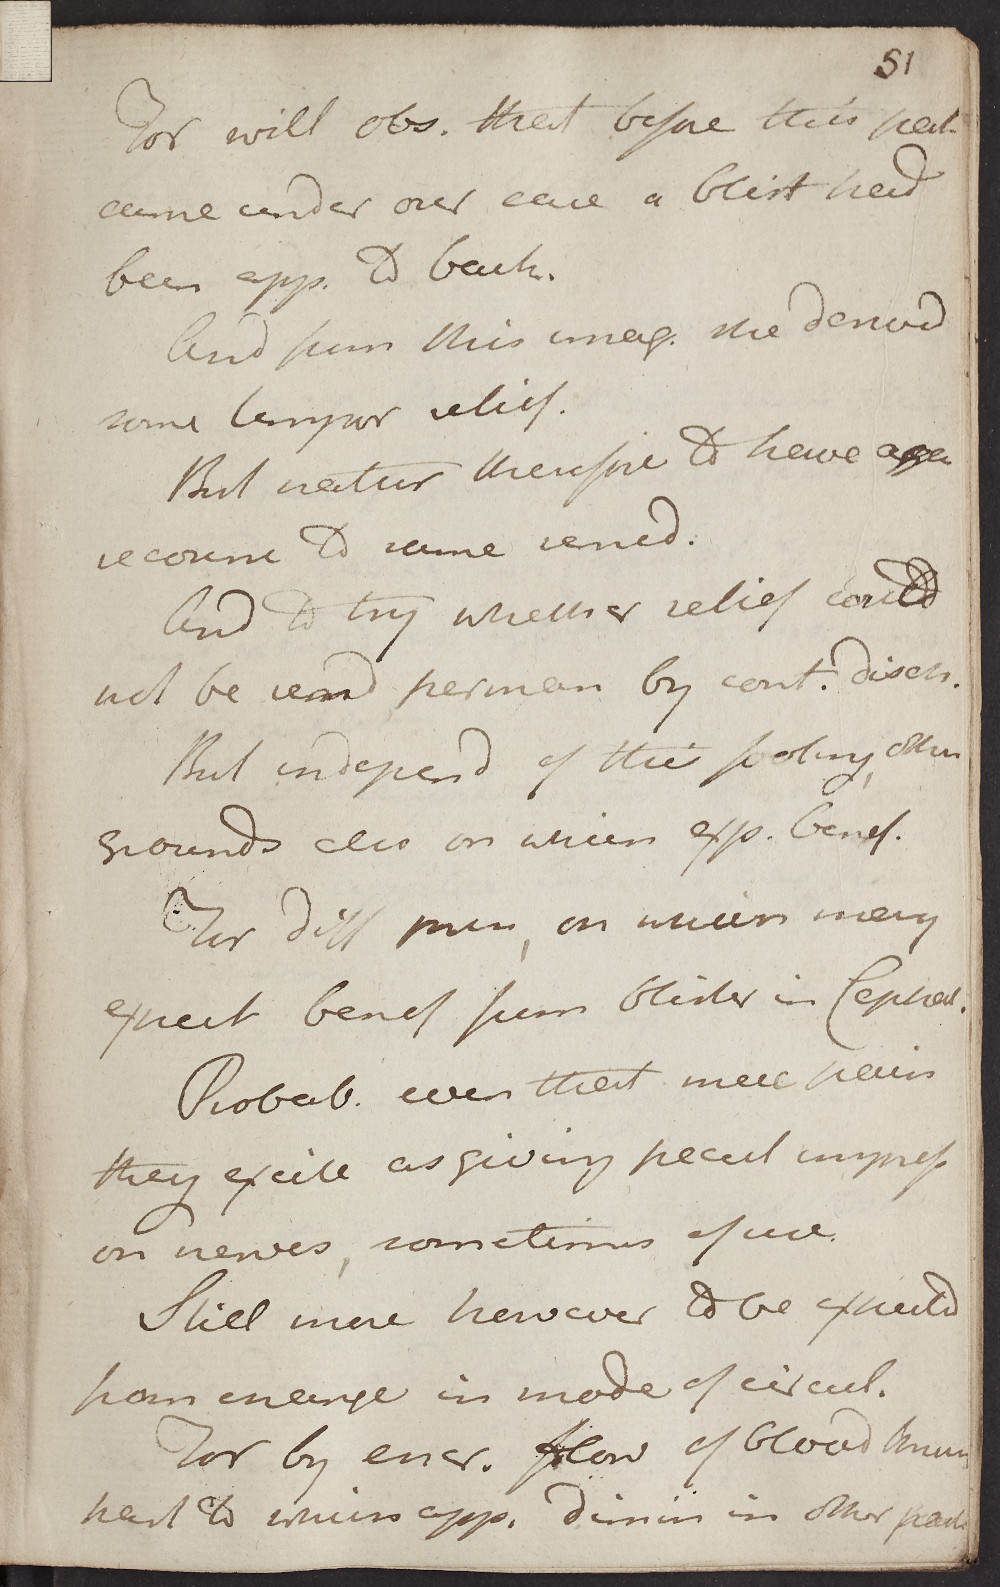 51
For will obs. that before this pat.
came under our care a blist had
been app. to back.
And from this imag. she derived
some tempor relief.
But natur therefore to have
recourse to same remed.
And to try whether relief could
not be rend perman by cont. disch.
But independ of this footing, other
grounds also on which exp. benef.
For diff prin, on which may
expect benef from blister in Cephal.
Probab. even that mere pain
they excite as giving pecul impress
on nerves, sometimes of use.
Still more however to be expected
from change in mode of circul.
For by encr. flow of blood thrugh
part to which app. dimin in other parts